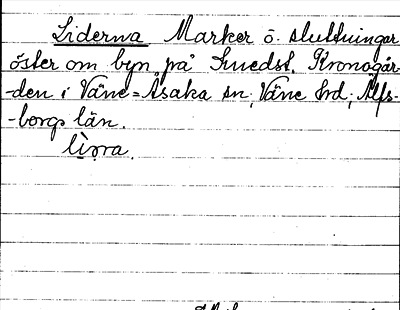 Liderna Marker o. sluttningar
öster om byn på Smedst. Kronogår-
-den i Väne=Åsaka sn, Väne hd, Älfs-
-borgs län.
lìɒra.